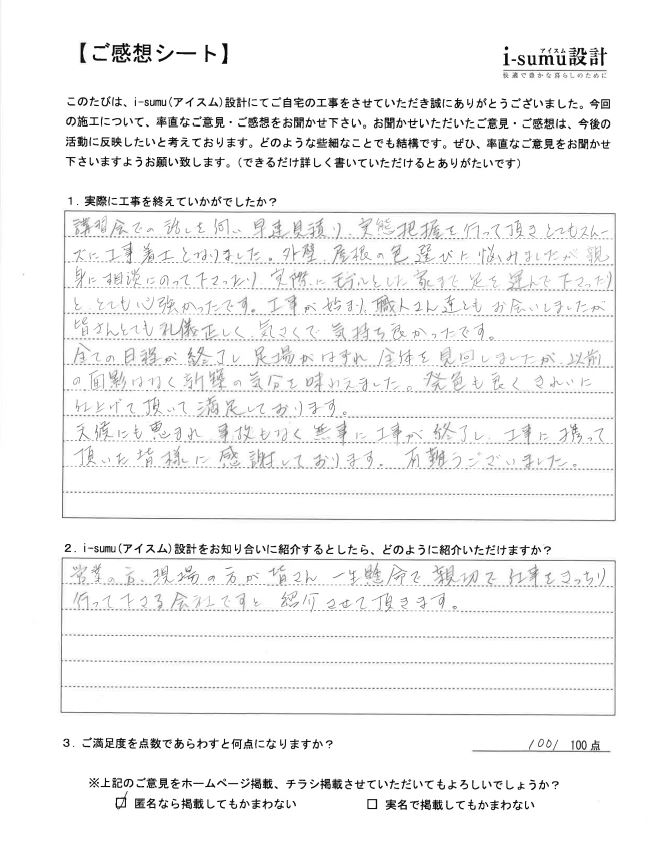 【ご感想シート】
アイスム
i-sumu設計
快適で豊かな暮らしのために
このたびは、i-sumu(アイスム)設計にてご自宅の工事をさせていただき誠にありがとうございました。今回
の施工について、率直なご意見・ご感想をお聞かせ下さい。お聞かせいただいたご意見・ご感想は、今後の
活動に反映したいと考えております。どのような些細なことでも結構です。ぜひ、率直なご意見をお聞かせ
下さいますようお願い致します。(できるだけ詳しく書いていただけるとありがたいです)
1. 実際に工事を終えていかがでしたか?
講習会での話しを伺い 早速見積り、実態把握を行って頂き とてもスムー
ズに工事着工となりました。外壁、屋根の色選びに悩みましたが 親
身に相談にのって下さったり 実際にモデルとした家まで 足を運んで下さったり
と、とても心強かったです。工事が始まり 職人さん達ともお会いしましたが
皆さんとても礼儀正しく 気さくで 気持ち良かったです。
全ての日程が終了し 足場がはずれ 全体を見回しましたが、以前
の面影はなく新築の気分を味わえました。発色も良く きれいに
仕上げて頂いて 満足しております。
天候にも恵まれ 事故もなく 無事に工事が終了し、工事に携って
頂いた皆様に感謝しております。 有難うございました。
2. i-sumu(アイスム)設計をお知り合いに紹介するとしたら、どのように紹介いただけますか?
営業の方、現場の方が皆さん 一生懸命で 親切で 仕事をきっちり
行って下さる会社ですと 紹介させて頂きます。
3. ご満足度を点数であらわすと何点になりますか?
100/ 100点
※上記のご意見をホームページ掲載、チラシ掲載させていただいてもよろしいでしょうか?
☑ 匿名なら掲載してもかまわない □ 実名で掲載してもかまわない